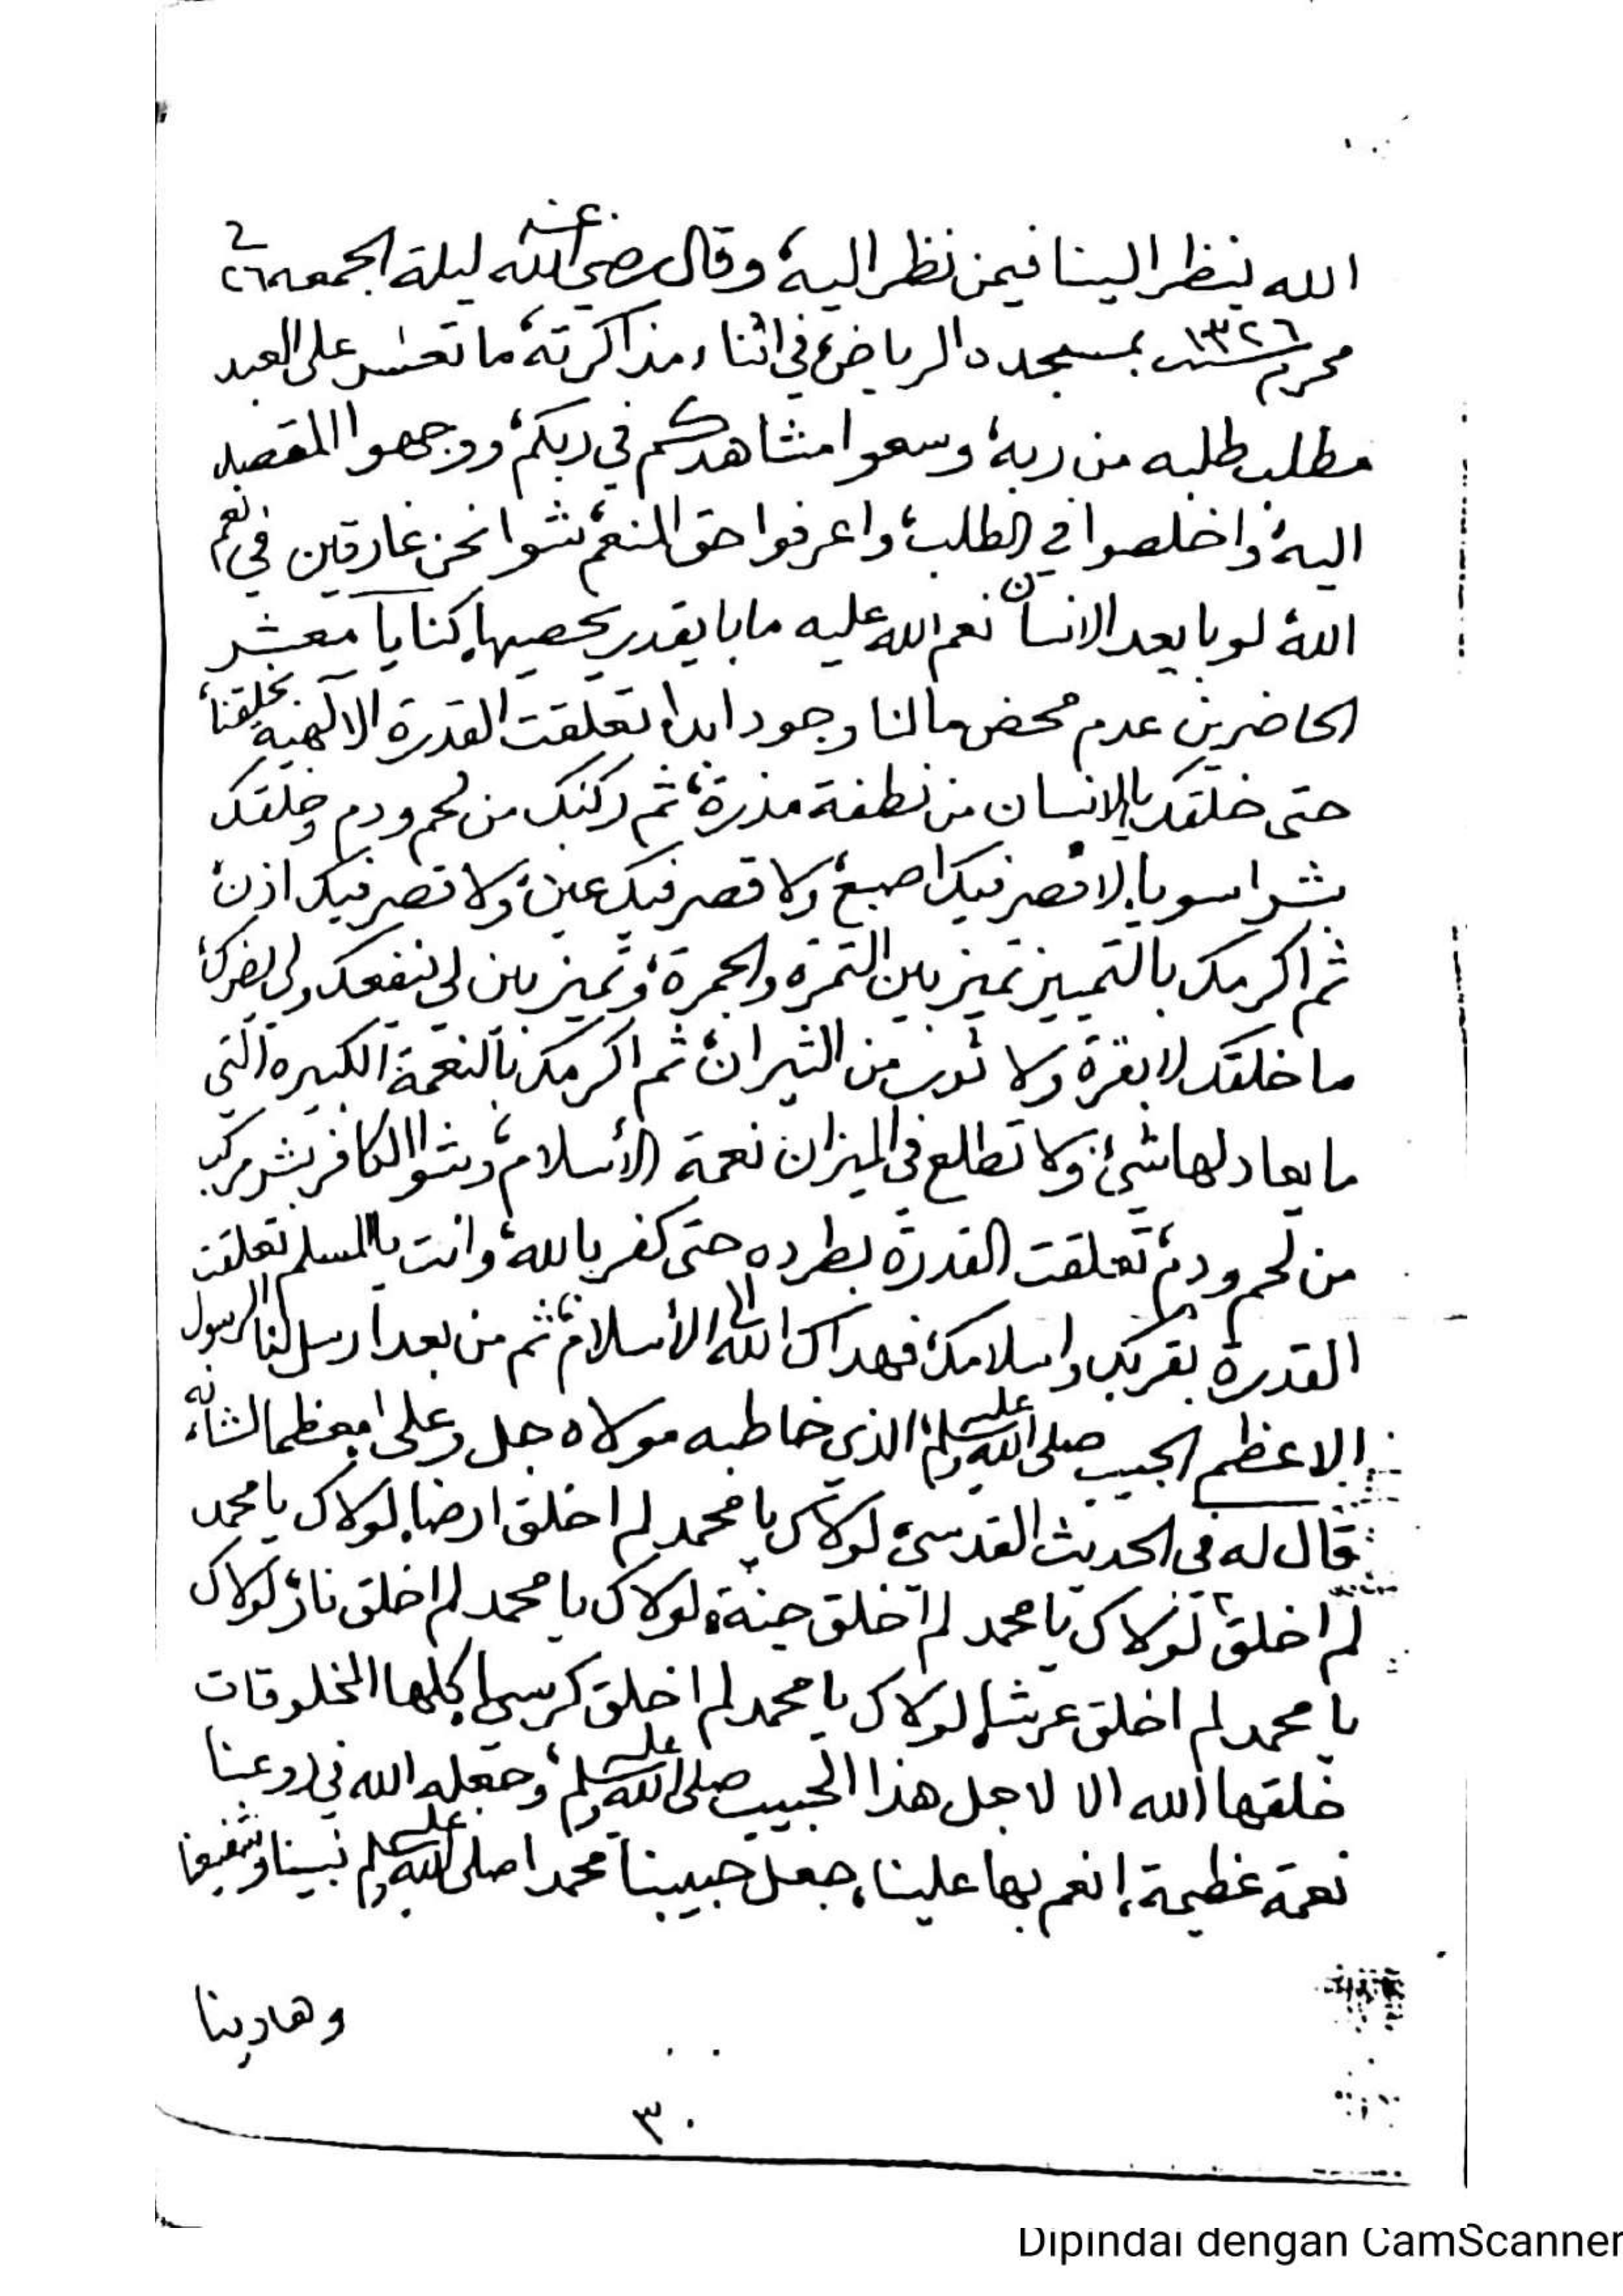 الله ينظر الينا فيمن نظر اليه، وقال رضي الله عنه ليلة الجمعه ٢٦ في
محرم سنة ١٣٢٦ بمسجده الرياض، في اثناء مذاكرته، ما تعسر على العبد
مطلب طلبه من ربه، وسعوا مشاهدكم في ربكم، ووجهوا المقصد
اليه، واخلصوا في الطلب، واعرفوا حق المنعم، شوا نحن غارقين في نعم
الله، لو با يعد الانسان نعم الله عليه ما با يقدر يحصيها، كنا يا معشر
الحاضرين عدم محض مالنا وجود ابدا، تعلقت القدرة الالهية بخلقنا،
حتى خلقك يا الانسان من نطفة مذرة، ثم ركبك من لحم ودم وخلقك
بشرا سويا، لا قصر فيك اصبع، ولا قصر فيك عين، ولا قصر فيك اذن،
ثم اكرمك بالتمييز تميز بين التمرة والجمرة، وتميز بين لي ينفعك ولي يضرك،
ما خلقك لا بقرة ولا ثور من الثيران، ثم اكرمك بالنعمة الكبيره التي
ما يعادلها شيئ، ولا تطلع في الميزان نعمة الأسلام، وشوا الكافر بشر مركب
من لحم ودم، تعلقت القدرة بطرده حتى كفر بالله، وانت يا المسلم تعلقت
القدرة بقربك واسلامك، فهداك الله الى الأسلام، ثم من بعد ارسل لنا الرسول
الاعظم الحبيب صلى الله عليه وسلم، الذي خاطبه مولاه جل وعلى معظما لشأنه،
قال له في الحديث القدسي، لولاك يا محمد لم اخلق ارضا، لولاك يا محمد
لم اخلق، لولاك يا محمد لم اخلق جنة، لولاك يا محمد لم اخلق نار، لولاك
يا محمد لم اخلق عرشا، لولاك يا محمد لم اخلق كرسيا، كلها المخلوقات
خلقها الله الا لاجل هذا الحبيب صلى الله عليه وسلم، وجعله الله
نعمة عظيمة، انعم بها علينا، جعل حبيبنا محمدا صلى الله عليه وسلم نبينا وشفيعنا
وهادينا
٣٠
Dipindai dengan CamScanner